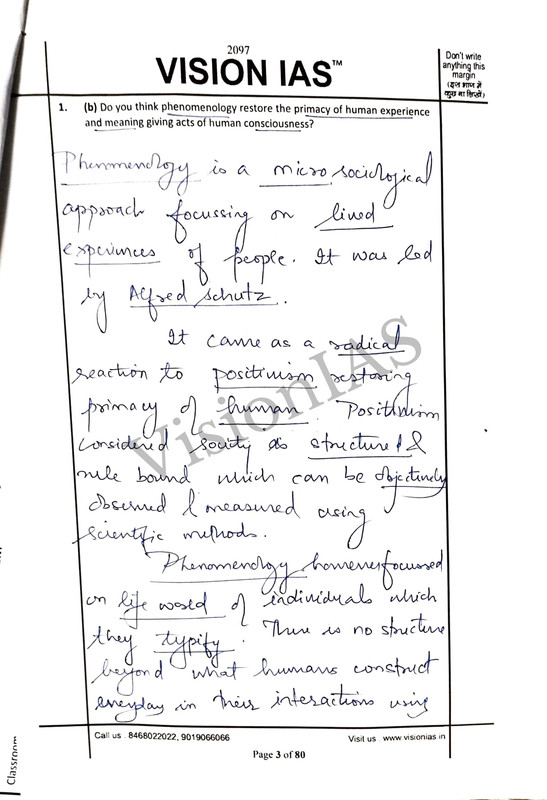 2097
VISION IAS™
Don't write
anything this
margin
(इस भाग में
कुछ ना लिखें)
1. (b) Do you think phenomenology restore the primacy of human experience
and meaning giving acts of human consciousness?
Phenmenology is a micro sociological
approach focussing on lived
experiences of people. It was led
by Alfred Schutz.
It came as a radical
reaction to positivism restoring
primacy of human. Positivism
considered society as structured &
rule bound which can be objectively
observed & measured using
scientific methods.
Phenomenology however focussed
on life world of individuals which
they typify. There is no structure
beyond what humans construct
everyday in their interactions using
VisionIAS
Call us : 8468022022, 9019066066
Visit us : www.visionias.in
Page 3 of 80
Classroom